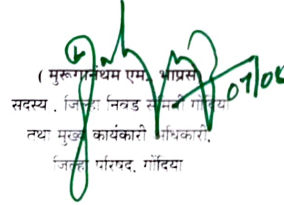 ( मुरूगानंथम एम. भाप्रसे )
सदस्य . जिल्हा निवड समिती गोंदिया
तथा मुख्य कार्यकारी अधिकारी,
जिल्हा परिषद, गोंदिया
07/06